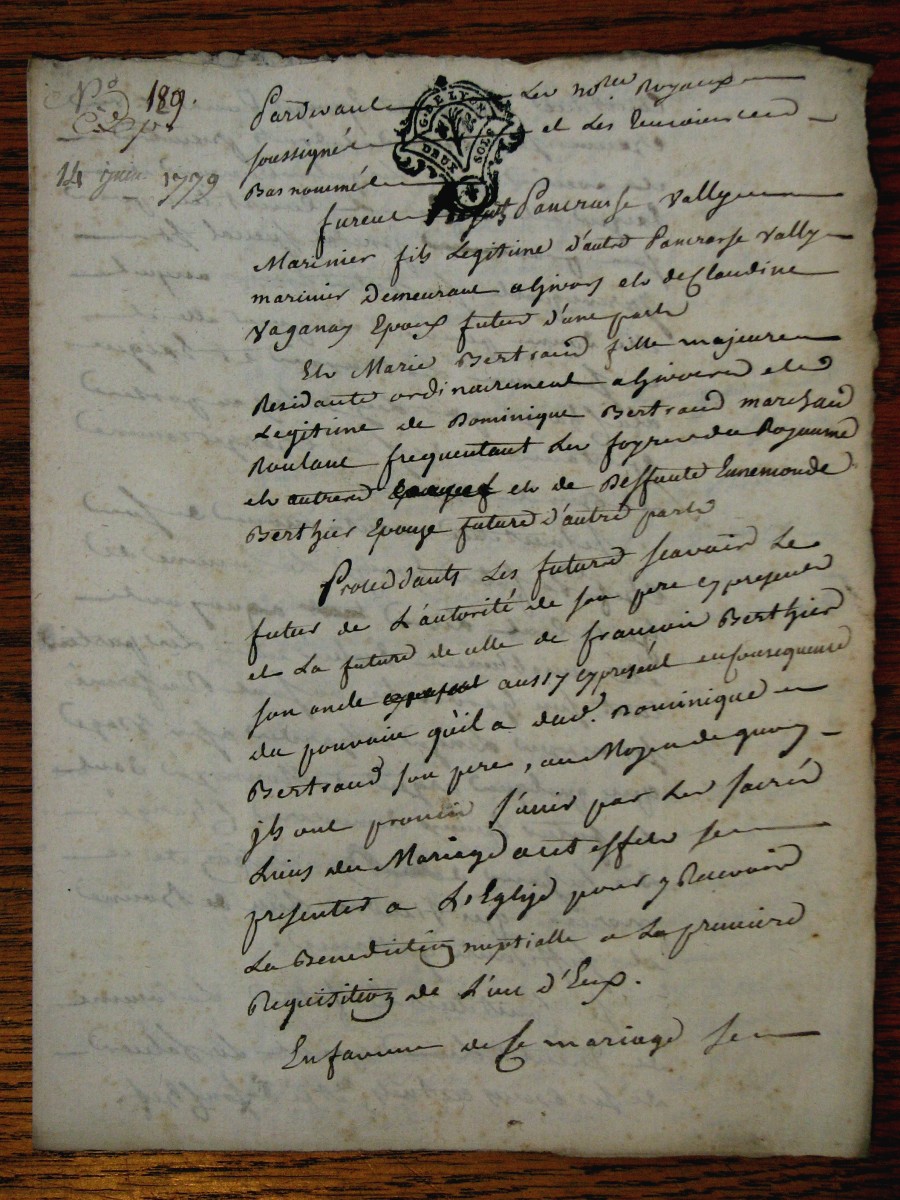 No 189.
14 juin 1779
GNE LYON
DEUX SOLS
Pardevant Les nores Royaux
soussignés et Les temoins en
Bas nommés
furent Pancrasse Vally
Marinier fils Legitime d'autre Pancrasse Vally
marinier Demeurant a Givors et de Claudine
Vaganay Epoux futur d'une part
Et Marie Bertrand fille majeure
Residante ordinairement a Givors et
Legitime de Dominique Bertrand marchand
Roulant frequentant les foyres du Royaume
et autres et de Deffunte Ennemonde
Berthier Epouze future d'autre part
Proceddants Les futurs scavoir Le
futur de L'autorité de son pere cy present
et La future de celle de francois Berthier
son oncle aussy cy present en consequence
du pouvoir qu'il a dud. Dominique
Bertrand son pere, au Moyen de quoy
jls ont promis s'unir par Les sacrés
Liens du Mariage a cet effet se
presenter a L'Eglize pour y Recevoir
La Benediction nuptialle a La premiere
Requisition de L'un d'Eux.
En faveur de Ce mariage se